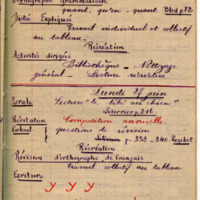 Orthographe grammaticale
quand, qu'en, quant Bled p 82
Dictée Expliquée
Travail individuel et collectif
au tableau.
Récréation
Activités dirigées
Bibliothèque - Nettoyage
général - Lecture récréative
Lundi 27 juin
Lecture "la bête au chien"
Récitation Composition annuelle.
Calcul questions de révision
p. 339, 340
Récréation
Révision d'orthographe de français
Travail collectif au tableau
Ecriture
Y Y Y